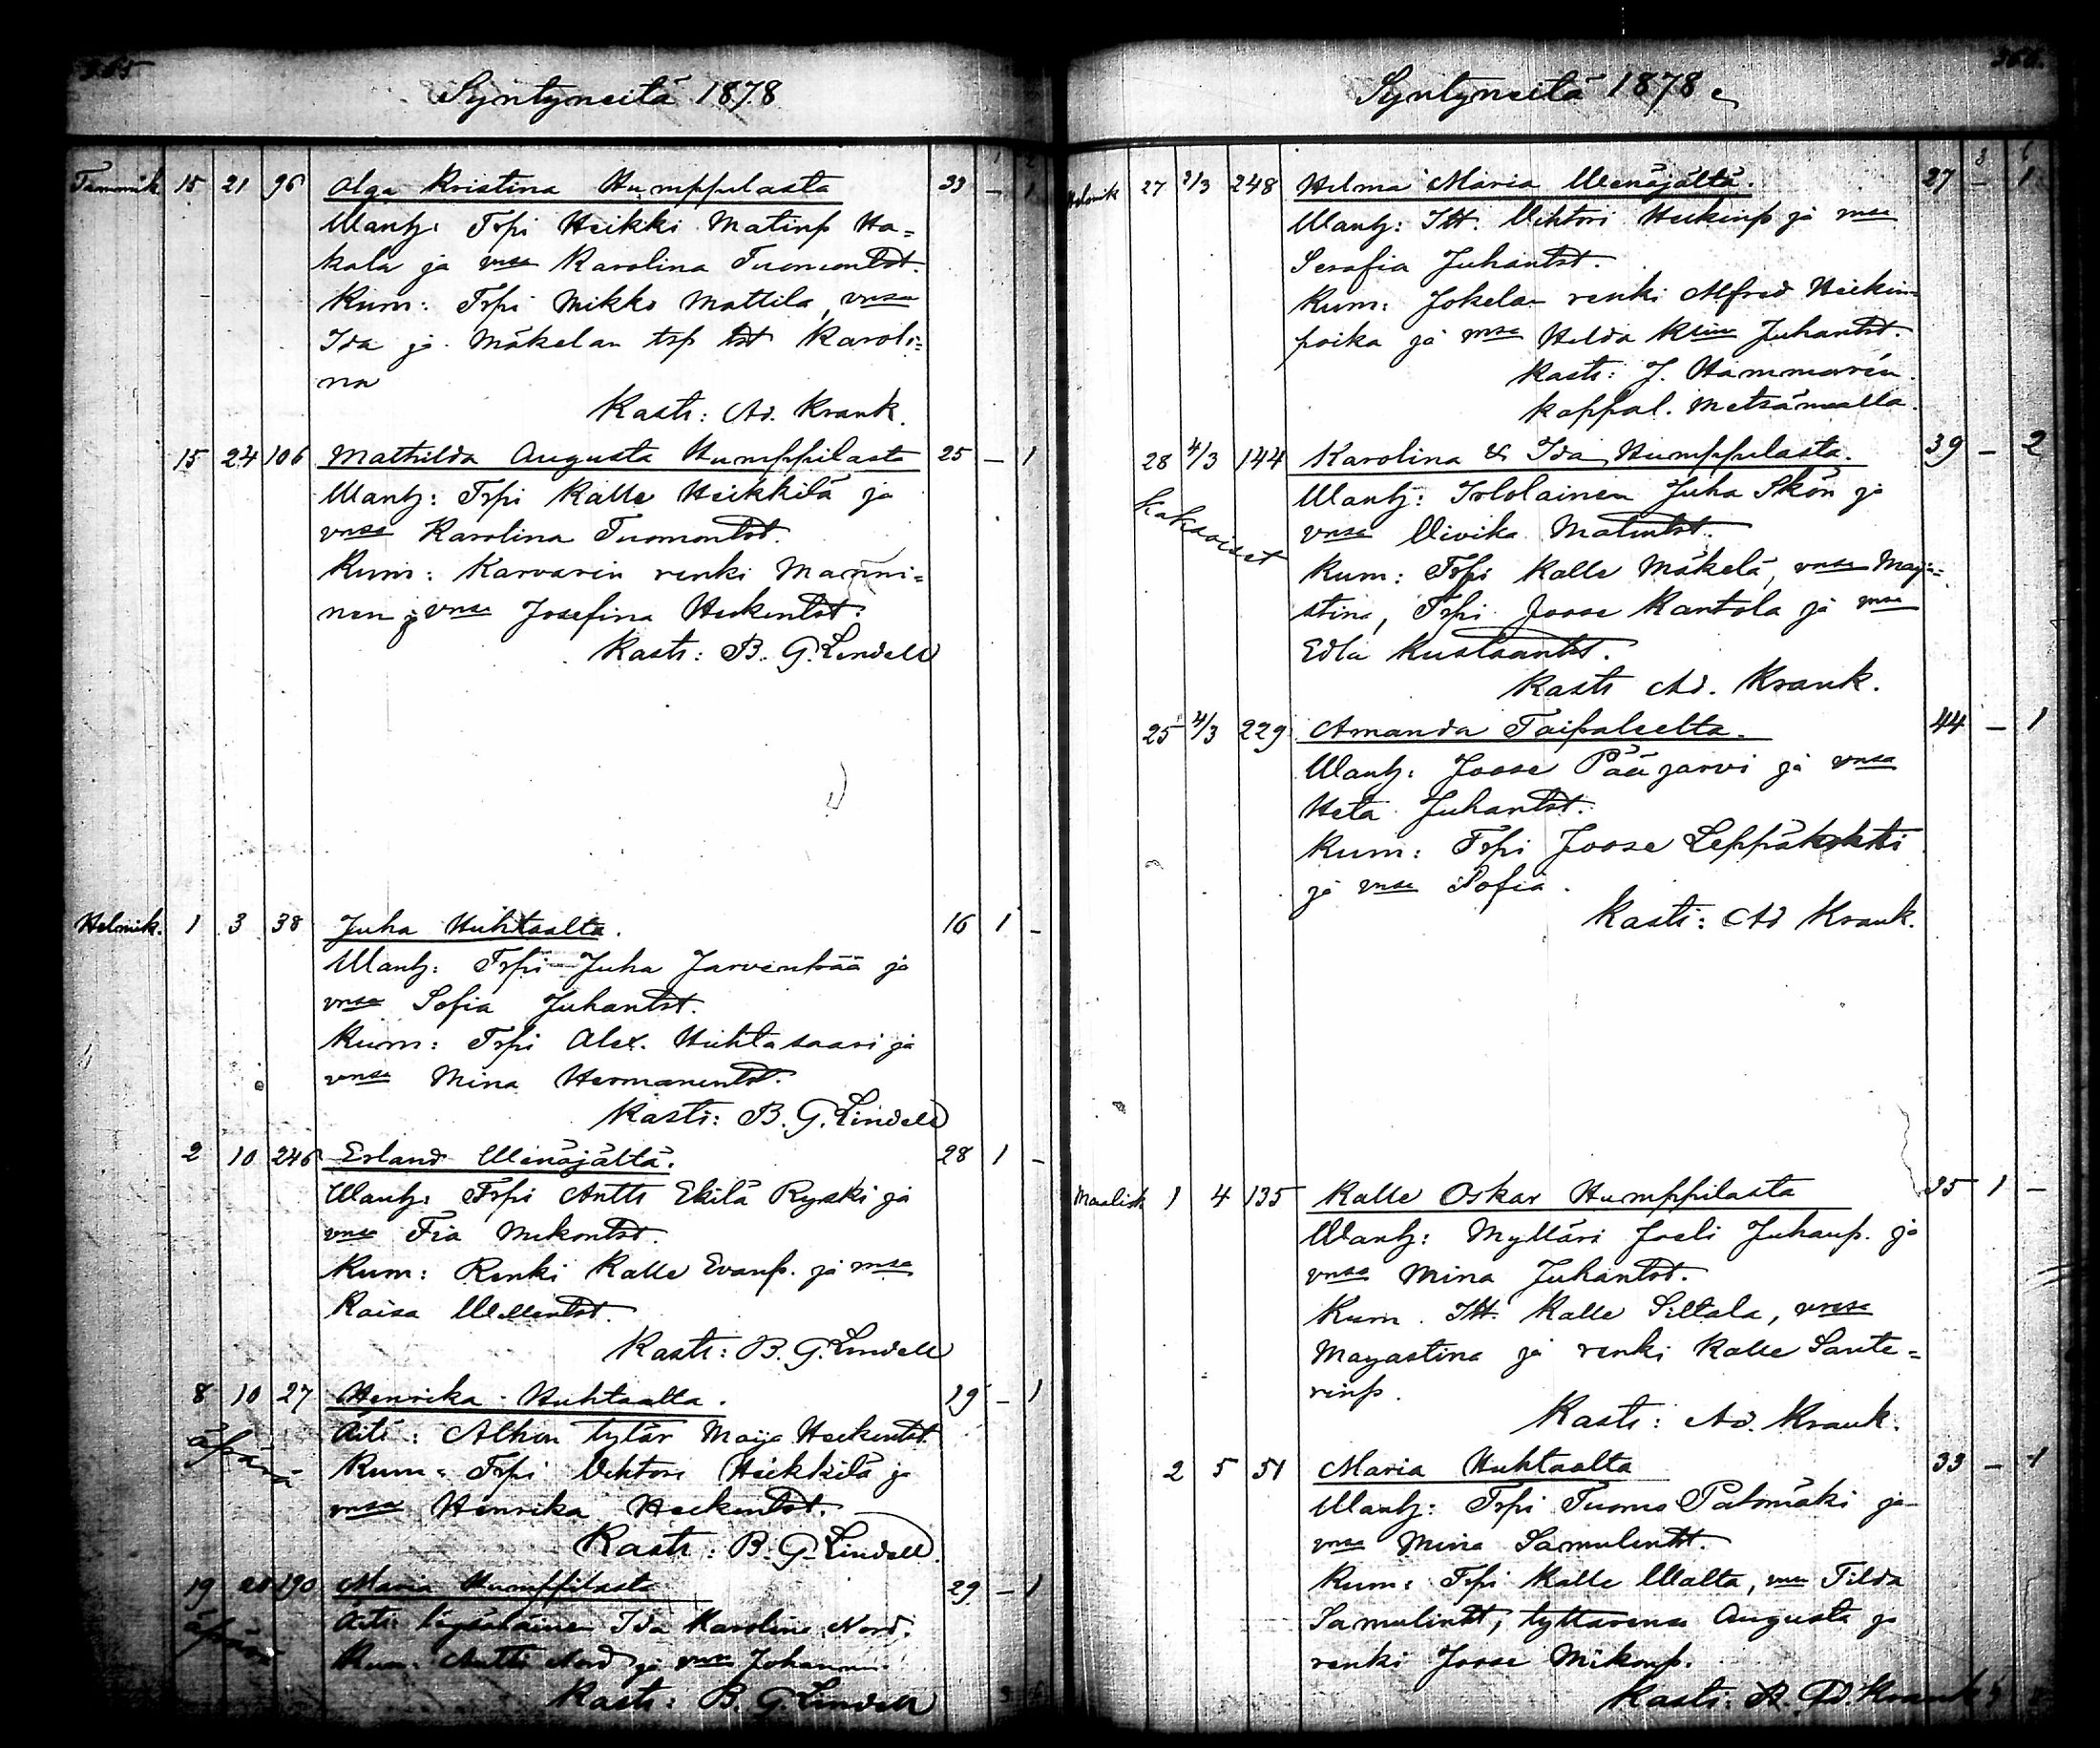 365
Syntyneitä 1878
Tammik 15 21 96 Olga Kristina Humppilasta 33 — 1
Wanh: Trpi Heikki Matinp Ha=
kala ja vmsa Karolina Tuomontst.
Kum: Trpi Mikko Mattila, vmsa
Ida ja Mäkelän trp tst Karoli=
na
Kasti: Ad. Krank.
15 24 106 Mathilda Augusta Humppilasta 25 — 1
Wanh: Trpi Kalle Heikkilä ja
vmsa Karolina Tuomontst.
Kum: Karvarin renki Manni=
nen ja vmsa Josefina Heikintst.
Kasti: B. G. Lindell
Helmik. 1 3 38 Juha Huhtaalta. 16 1 —
Wanh: Trpi Juha Jarvenpää ja
vmsa Sofia Juhantst.
Kum: Trpi Alex. Huhtasaari ja
vmsa Mina Hermanintst.
Kasti: B. G. Lindell
2 10 246 Erland Wenäjältä. 28 1 —
Wanh: Trpi Antti Ekilä Ryski ja
vmsa Fia Mikontst.
Kum: Renki Kalle Evanp. ja vmsa
Kaisa Willentst.
Kasti: B. G. Lindell
8 10 27 Henrika Huhtaalta. 19 — 1
äpärä
Äiti: Alhon tytär Maija Heikintst.
Kum: Trpi Vihtori Heikkilä ja
vmsa Henrika Heikintst.
Kasti: B. G. Lindell.
19 20 190 Maria Humppilasta 29 — 1
äpärä
Äiti: Ida Karolina Nord.
Kum: Antti Nord ja vmsa Johanna.
Kasti: B. G. Lindell
366.
Syntyneitä 1878
Helmik 27 2/3 248 Helma Maria Wenäjältä. 27 — 1
Wanh: Itt. Vihtori Heikinp ja vmsa
Serafia Juhantst.
Kum: Jokelan renki Alfred Heikin=
poika ja vmsa Hilda Juhantst.
Kasti: J. Hammarén.
kappal. Metsämaalla.
28 4/3 144 Karolina & Ida Humppilasta. 39 — 2
Kaksoiset
Wanh: Itslolainen Juha Skön ja
vmsa Viivika Matintst.
Kum: Trpi Kalle Mäkelä, vmsa Maja=
stina, Trpi Joose Kantola ja vmsa
Edla Kustaantst.
Kasti Ad. Krank.
25 4/3 229 Amanda Taipaleelta. 44 — 1
Wanh: Joose Pääjarvi ja vmsa
Heta Juhantst.
Kum: Trpi Joose Leppäkohti
ja vmsa Sofia.
Kasti: Ad Krank.
Maalisk 1 4 135 Kalle Oskar Humppilasta 35 1 —
Wanh: Mylläri Joeli Juhanp. ja
vmsa Mina Juhantst.
Kum. Itt. Kalle Siltala, vmsa
Majastina ja renki Kalle Sante=
rinp.
Kasti: Ad. Krank.
2 5 51 Maria Huhtaalta 33 — 1
Wanh: Trpi Tuomo Palomäki ja
vmsa Mina Samulintt.
Kum: Trpi Kalle Walta, vmsa Tilda
Samulintt, tyttärensa Augusta ja
renki Joose Mikonp.
Kasti: Ad. Krank